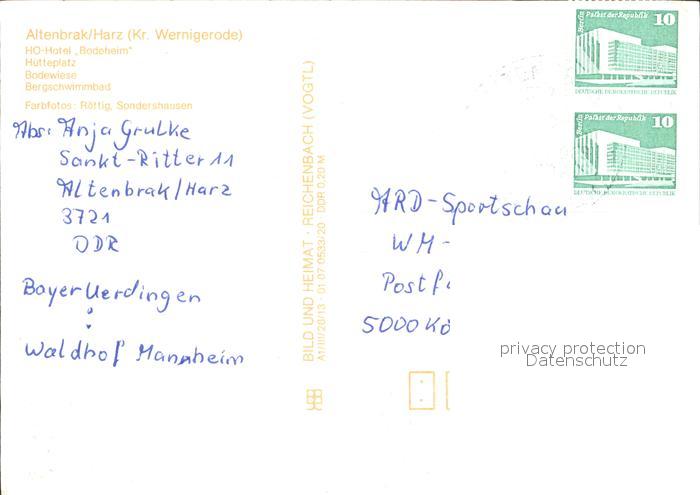 Altenbrak/Harz (Kr. Wernigerode)
HO-Hotel „Bodeheim"
Hütteplatz
Bodewiese
Bergschwimmbad
Farbfotos: Röttig, Sondershausen
Abs: Anja Grulke
Sankt-Ritter 11
Altenbrak/Harz
3721
DDR
Bayer Uerdingen
:
Waldhof Mannheim
BILD UND HEIMAT · REICHENBACH (VOGTL)
A1/III/26/13 01 07 0533/20 DDR 0,20 M
Berlin Palast der Republik 10
DEUTSCHE DEMOKRATISCHE REPUBLIK
Berlin Palast der Republik 10
DEUTSCHE DEMOKRATISCHE REPUBLIK
ARD-Sportschau
WM-
Postf
5000 Kö
privacy protection
Datenschutz